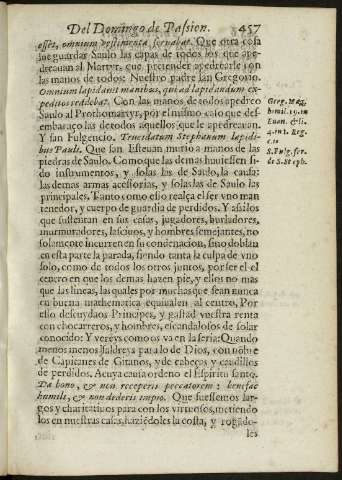 Del Domingo de Passion. 457
esset, omnium vestimenta seruabat. Que otra cosa
fue guardar Saulo las capas de todos los que ape-
dreauan al Martyr, que, pretender apedrearle con
las manos de todos: Nuestro padre san Gregorio.
Omnium lapidauit manibus, qui ad lapidandum ex-
peditos reddebat. Con las manos de todos apedreo
Saulo al Prothomartyr, por el mismo caso que des-
embaraço las de todos aquellos que le apedreauan.
Y san Fulgencio. Trucidatum Stephanum lapidi-
bus Pauli. Que san Esteuan murio a manos de las
piedras de Saulo. Como que las demas huuiessen si-
do instrumentos, y solas las de Saulo, la causa:
las demas armas acessorias, y solas las de Saulo las
principales. Tanto como esso realça el ser vno man
tenedor, y cuerpo de guardia de perdidos. Y assi los
que sustentan en sus casas, jugadores, burladores,
murmuradores, lasciuos, y hombres semejantes, no
solamente incurren en su condenacion, sino doblan
en esta parte la parada, siendo tanta la culpa de vno
solo, como de todos los otros juntos, por ser el el
centro en que los demas hazen pie, y ellos no mas
que las lineas, las quales por muchas que sean nunca
en buena mathematica equiualen al centro, Por
esso descuydaos Principes, y gastad vuestra renta
con chocarreros, y hombres, escandalosos de solar
conocido: Y vereys como os va en la feria: Quando
menos menos saldreys para lo de Dios, con nõbre
de Capitanes de Gitanos, y de cabeças y caudillos
de perdidos. A cuya causa ordeno el Espiritu santo.
Da bono, & non receperis peccatorem: benefac
humili, & non dederis impio. Que fuessemos lar-
gos y charitatiuos para con los virtuosos, metiendo
los en nuestras casas, haziẽdoles la costa, y rogãdo-
les
Greg. Mag.
homil. 19. in
S. Fulg. ser.
de S. Steph.